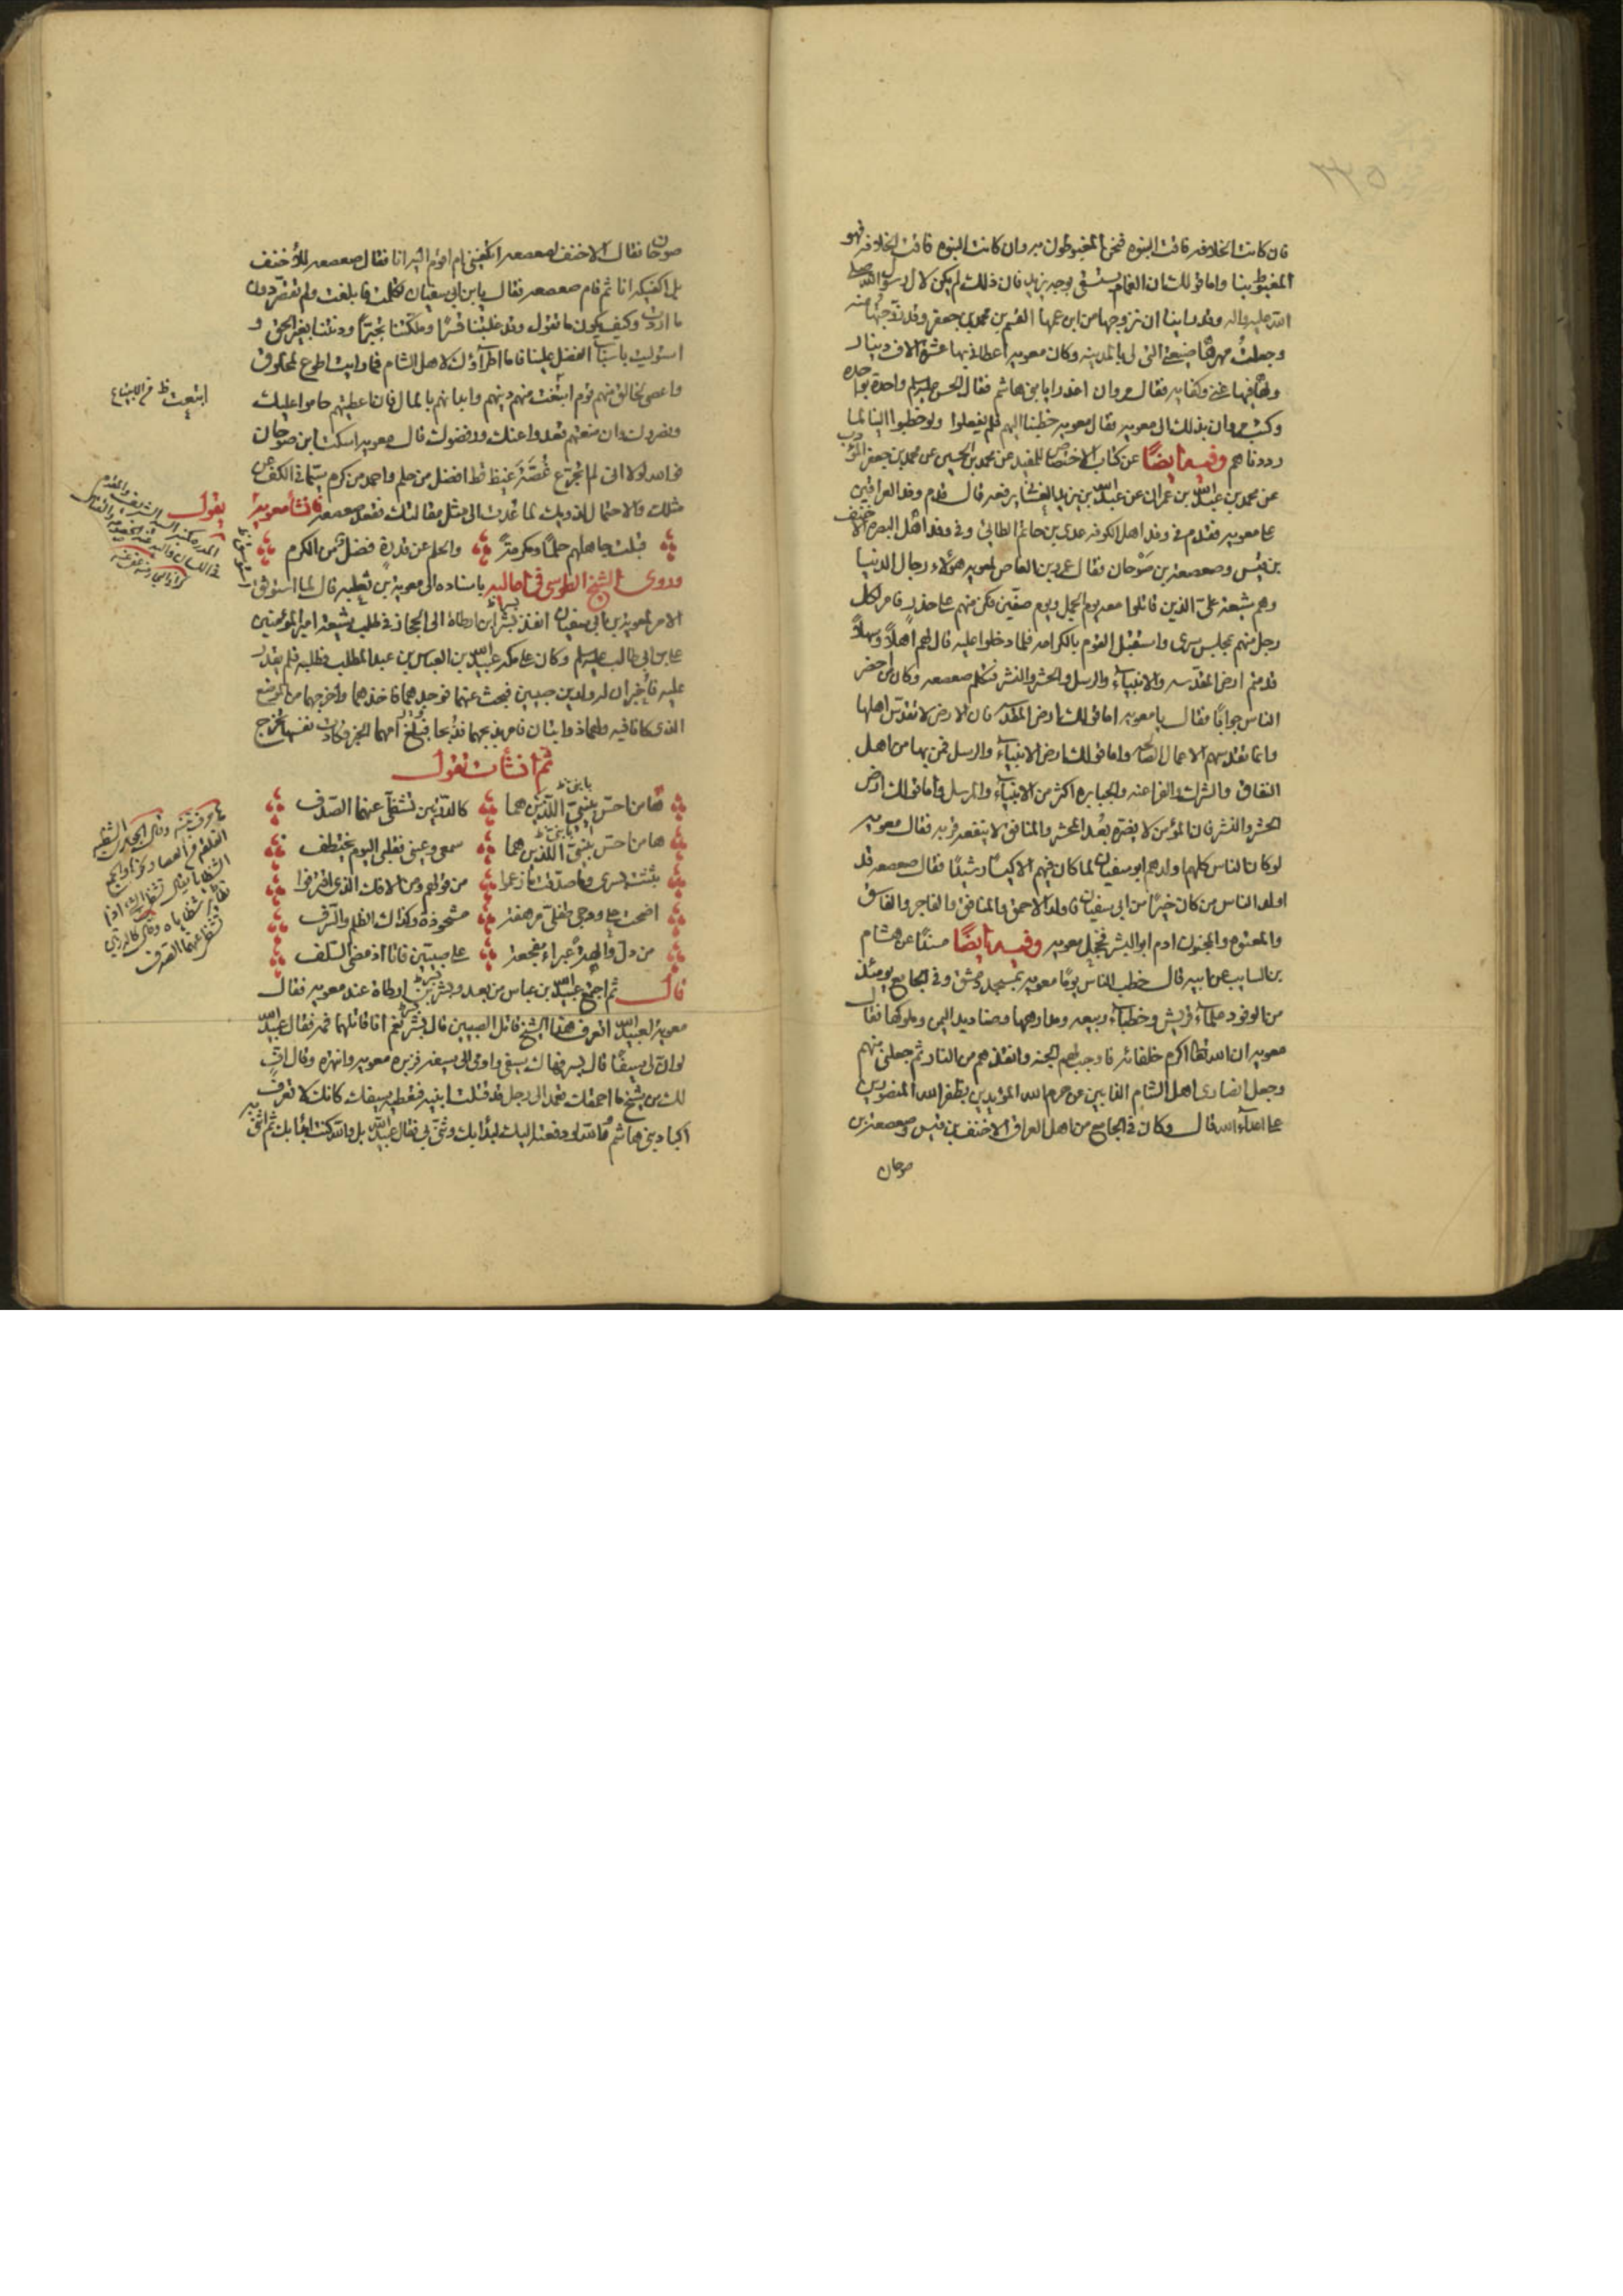 ٢٢٥
فان كانت الخلافه فاقت النبوه فنحن المغبوطون به وان كانت النبوه فاقت الخلافه فهو
المغبوط بنا واما قولك ان الغمام يستسقى بوجه يزيد فان ذلك لم يكن الا لآل رسول الله صلى
الله عليه واله وقد راينا ان نزوجها من ابن عمها القسم بن محمد بن جعفر وقد زوجتها منه
وجعلت مهرها ضيعتي التى لى بالمدينه وكان معويه اعطانى بها عشرة الاف دينار
ولها فيها غنى وكفايه فقال مروان اغدرا يا بنى هاشم فقال الحسن عليه السلم واحدة بواحده
وكتب مروان بذلك الى معويه فقال معويه خطبنا اليهم فلم يفعلوا ولو خطبوا الينا لما
رددناهم وفيه ايضًا عن كتاب الاختصاص للمفيد عن محمد بن الحسين عن محمد بن جعفر المؤدب
عن محمد بن عبد الله بن عمران عن عبد الله بن يزيد الغسانى يرفعه قال قدم وفد العراقين
على معويه فقدم فى وفد اهل الكوفه عدى بن حاتم الطائى وفى وفد اهل البصره الاحنف
بن قيس وصعصعة بن صوحان فقال عمرو بن العاص لمعويه هؤلاء رجال الدنيا
وهم شيعة على الذين قاتلوا معه يوم الجمل ويوم صفين فكن منهم على حذر فامر لكل
رجل منهم بمجلس سرى واستقبل القوم بالكرامه فلما دخلوا عليه قال لهم اهلاً وسهلاً
قدمتم ارض المقدسه والانبياء والرسل والحشر والنشر فتكلم صعصعه وكان من احضر
الناس جوابًا فقال يا معويه اما قولك ارض المقدسه فان الارض لا تقدس اهلها
وانما تقدسهم الاعمال الصالحه واما قولك ارض الانبياء والرسل فمن بها من اهل
النفاق والشرك والفراعنه والجبابره اكثر من الانبياء والرسل واما قولك ارض
الحشر والنشر فان المؤمن لا يضره بُعد المحشر والمنافق لا ينفعه قربه فقال معويه
لو كان الناس كلهم اولدهم ابو سفيان لما كان فيهم الا كيسًا رشيدًا فقال صعصعه قد
اولد الناس من كان خيرًا من ابى سفيان فاولد الاحمق والمنافق والفاجر والفاسق
والمعتوه والمجنون ادم ابو البشر فخجل معويه وفيه ايضًا مسندًا عن هشام
بن السايب عن ابيه قال خطب الناس يومًا معويه بمسجد دمشق وفى الجامع يومئذ
من الوفود علماء قريش وخطباء ربيعه ومدارهها وصناديد اليمن وملوكها فقال
معويه ان الله تعالى اكرم خلفائه فاوجب لهم الجنه وانقذهم من النار ثم جعلنى منهم
وجعل انصارى اهل الشام الذابين عن حرم الله المؤيدين بظفر الله المنصورين
على اعداء الله قال وكان فى الجامع من اهل العراق الاحنف بن قيس وصعصعة بن
صوحان
صوحان فقال الاحنف لصعصعه اتكفينى ام اقوم اليه انا فقال صعصعه للاحنف
بل اكفيكه انا ثم قام صعصعه فقال يا بن ابى سفيان تكلمت فابلغت ولم تقصر دون
ما اردت وكيف يكون ما تقول وقد غلبتنا قسرًا وملكتنا تجبرًا ودنتنا بغير الحق و
استوليت باسباب الفضل علينا فاما اطراؤك لاهل الشام فما رايت اطوع لمخلوق
واعصى لخالق منهم قوم ابتعت منهم دينهم وابدانهم بالمال فان اعطيتهم حاموا عليك
ونصروك وان منعتهم قعدوا عنك ورفضوك قال معويه اسكت ابن صوحان
فوالله لولا انى لم اتجرع غصة غيظ قط افضل من حلم واحمد من كرم سيما فى الكف عن
مثلك والاحتمال لذويك لما عُدت الى مثل مقالتك فقعد صعصعه فانشأ معويه يقول
قبلت جاهلهم حلمًا ومكرمةً والحلم عن قدرة فضل من الكرم
وروى الشيخ الطوسى فى اماليه باسناده الى معوية بن ثعلبه قال لما استوثق
الامر لمعوية بن ابى سفيان انفذ بُسر ابن ارطاة الى الحجاز فى طلب شيعة امير المؤمنين
على بن ابى طالب عليه السلم وكان على مكه عبيد الله بن العباس بن عبد المطلب فطلبه فلم يقدر
عليه فأُخبر ان له ولدين صبيين فبحث عنهما فوجدهما فاخذهما واخرجهما من الموضع
الذى كانا فيه ولهما ذوابتان فامر بذبحهما فذبحا فبلغ امهما الخبر فكادت نفسها تخرج
ثم انشأت تقول
ها من احس بنيى اللذين هما كالدرتين تشظى عنهما الصدف
ها من احس بنيى اللذين هما سمعى وعينى فقلبى اليوم مختطف
نبئت بسرى وما صدقت ما زعموا من قولهم ومن الافك الذى اقترفوا
اضحت على ودجى طفلى مرهفة مشحوذة وكذاك الظلم والسرف
من دل والهة عبراء مفجعة على صبيين فاتا اذ مضى السلف
قال ثم اجتمع عبيد الله بن عباس من بعد وبسر بن ارطاة عند معويه فقال
معوية لعبيد الله اتعرف هذا الشيخ قاتل الصبيين قال بسر نعم انا قاتلهما فمه فقال عبيد الله
لو ان لى سيفًا قال بسر فهاك سيفى واومى الى سيفه فزبره معويه وانتهره وقال اف
لك من شيخ ما احمقك تعمد الى رجل قد قتلت ابنيه فتعطيه سيفك كانك لا تعرف
اكباد بنى هاشم والله لو دفعته اليك لبدا بك وثنى بى فقال عبيد الله بل والله كنت ابدا بك ثم اثنى به
ابتعت ظ